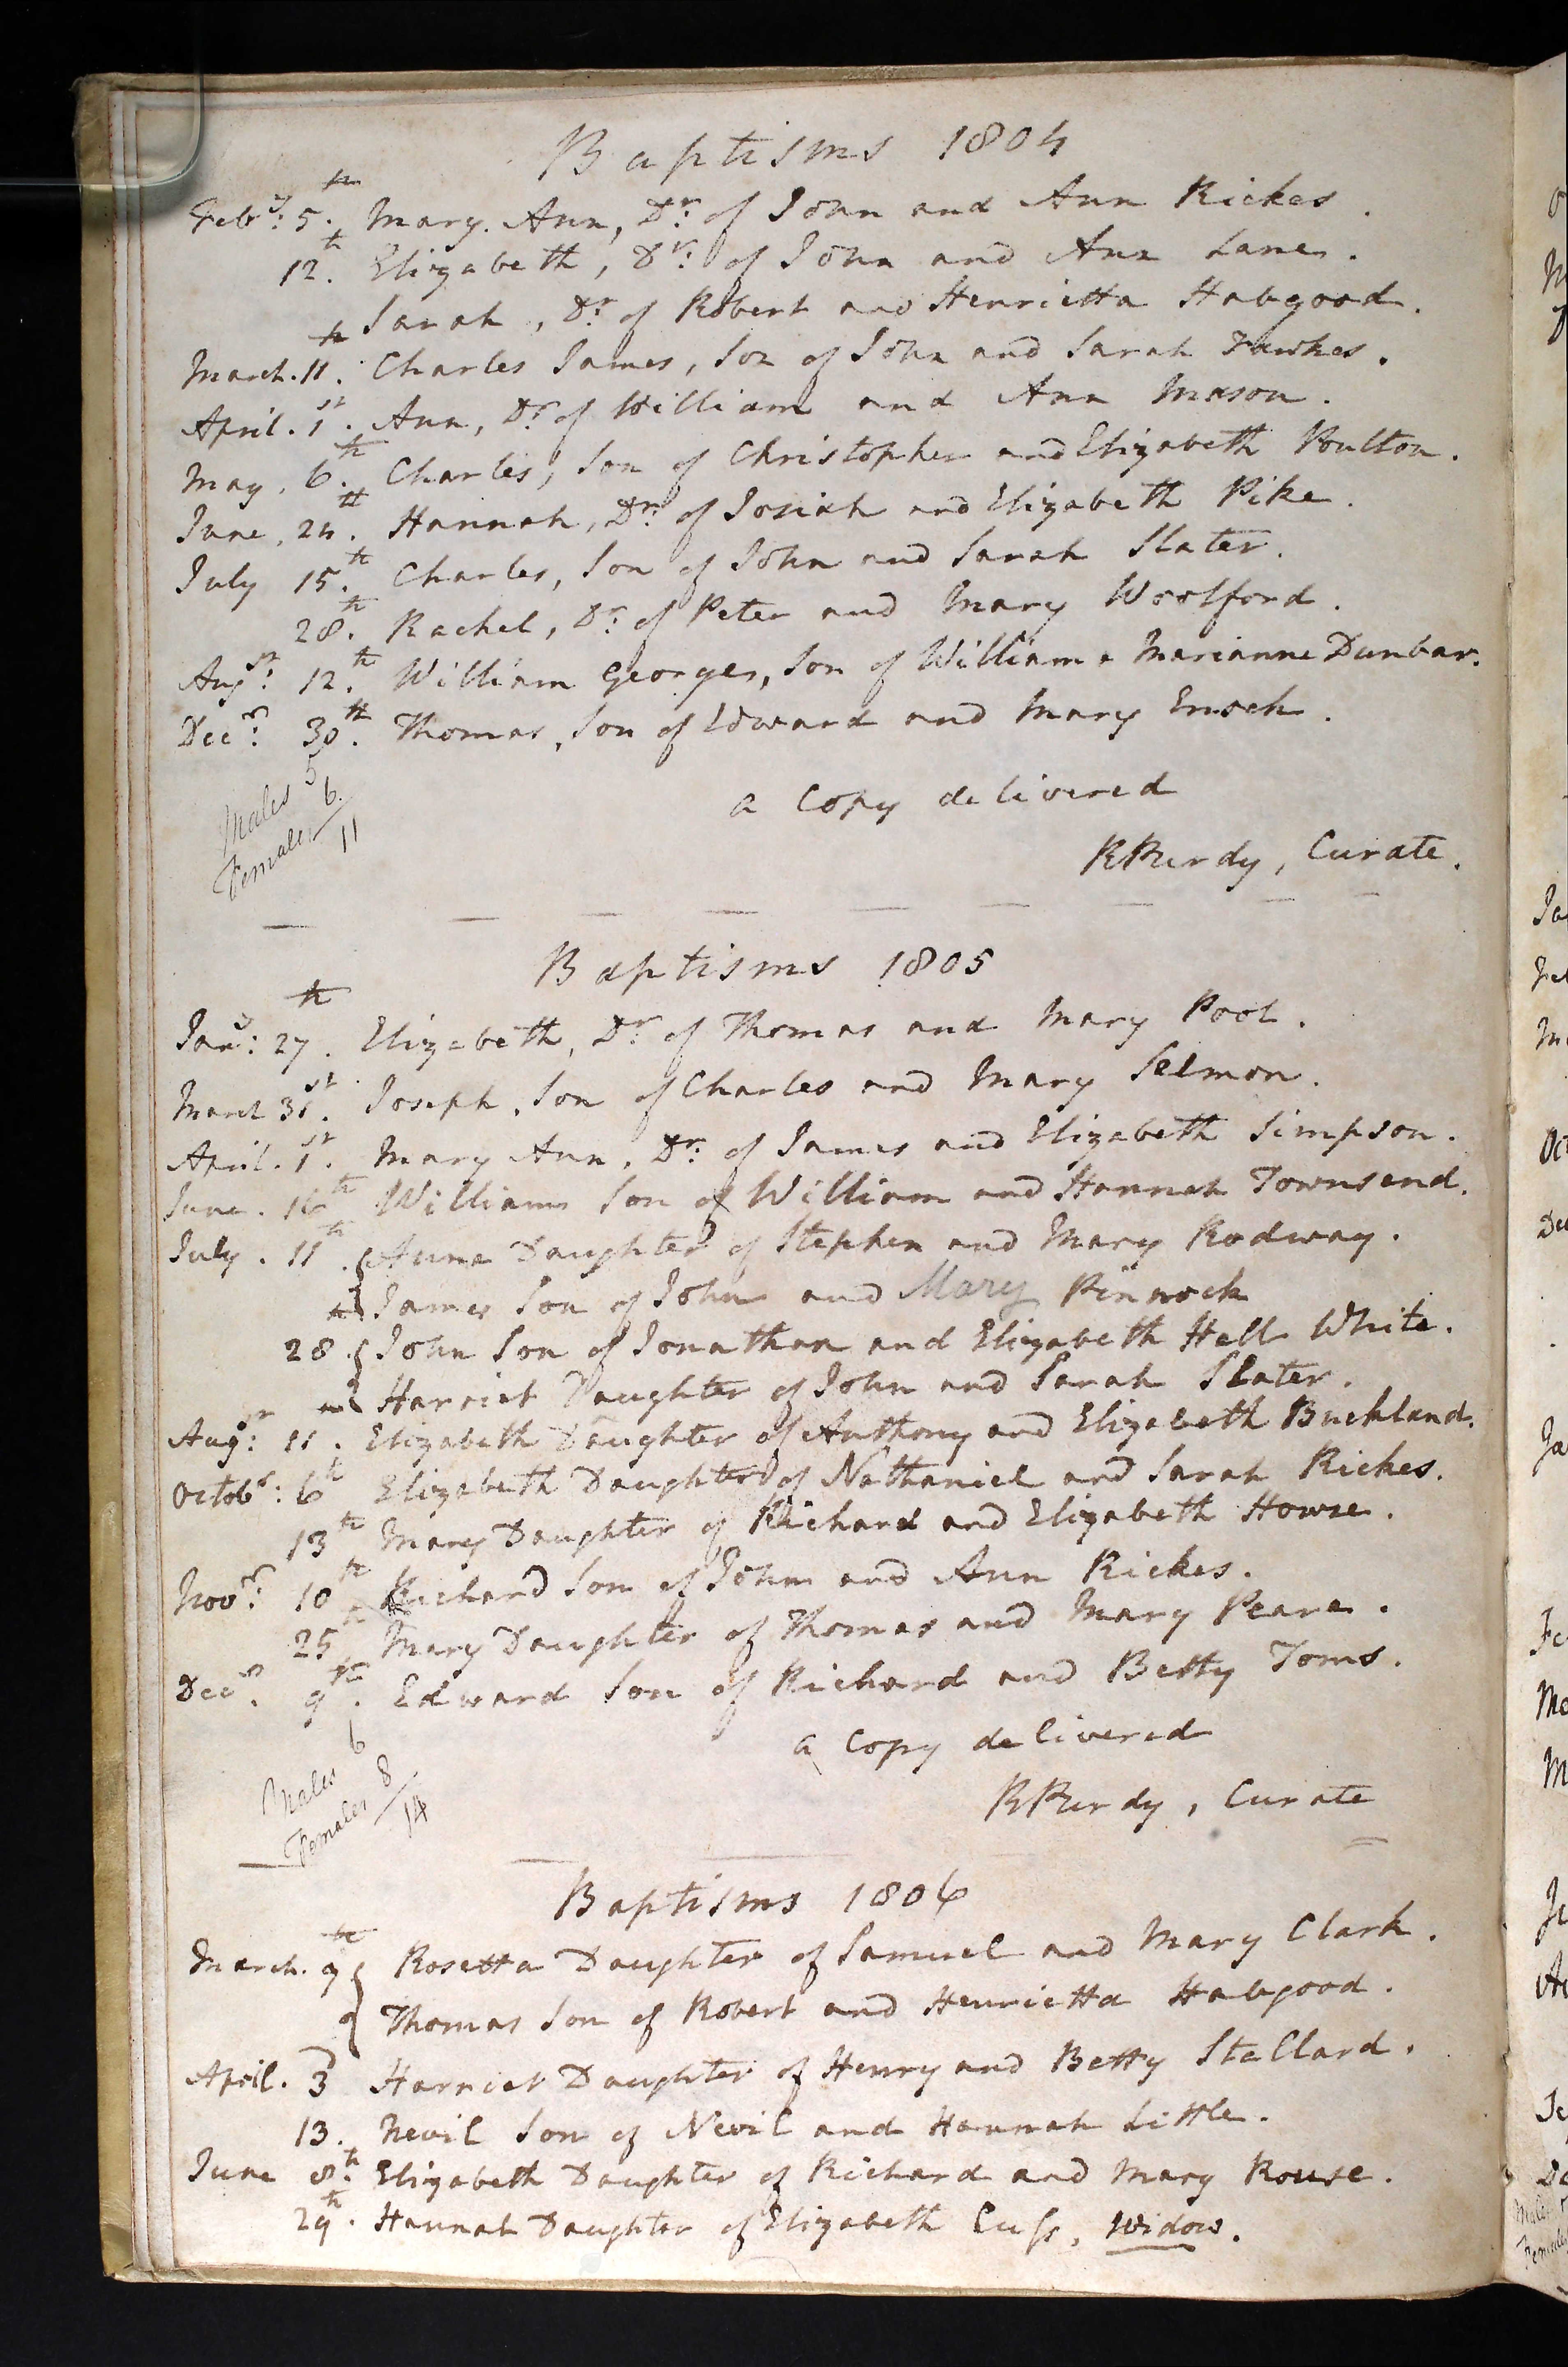 Baptisms 1804
Febry: 5th. Mary Ann, Dr: of John and Ann Rickes.
12th. Elizabeth, Dr: of John and Ann Lane.
Sarah, Dr: of Robert and Henrietta Habgood.
March. 11th. Charles James, Son of John and Sarah Fawkes.
April. 1st. Ann, Dr: of William and Ann Mason.
May, 6th. Charles, Son of Christopher and Elizabeth Poulton.
June, 24th. Hannah, Dr: of Josiah and Elizabeth Pike.
July 15th. Charles, Son of John and Sarah Slater.
28th. Rachel, Dr: of Peter and Mary Woolford.
Augst: 12th. William Georges, Son of William & Marianne Dunbar.
Decr: 30th. Thomas, Son of Edward and Mary
Males 5
Females 6.
11
a Copy delivered
R Purdy, Curate.
Baptisms 1805
Jany: 27th. Elizabeth, Dr: of Thomas and Mary Pool.
March 31st. Joseph, Son of Charles and Mary Selmon.
April. 1st. Mary Ann, Dr: of James and Elizabeth Simpson.
June. 16th William Son of William and Hannah Townsend.
July. 11th. Anna Daughter of Stephen and Mary Rodway.
James Son of John and Mary Pinnock
28. John Son of Jonathan and Elizabeth Hell White.
Harriet Daughter of John and Sarah Slater.
Augst: 11. Elizabeth Daughter of Anthony and Elizabeth Buckland.
Octobr: 6th Elizabeth Daughter of Nathaniel and Sarah Rickes.
13th Mary Daughter of Richard and Elizabeth Howse.
Novr: 10th Richard Son of John and Ann Rickes.
25th Mary Daughter of Thomas and Mary Peare.
Decr. 9th. Edward Son of Richard and Betty Toms.
Males 6
Females 8
14
a Copy delivered
R Purdy, Curate
Baptisms 1806
March. 9th Rosetta Daughter of Samuel and Mary Clark.
9 Thomas Son of Robert and Henrietta Habgood.
April. 3 Harriet Daughter of Henry and Betty Stallard.
13. Nevil Son of Nevil and Hannah Little.
June 8th. Elizabeth Daughter of Richard and Mary Rouse.
29th. Hannah Daughter of Elizabeth Cuss, Widow.